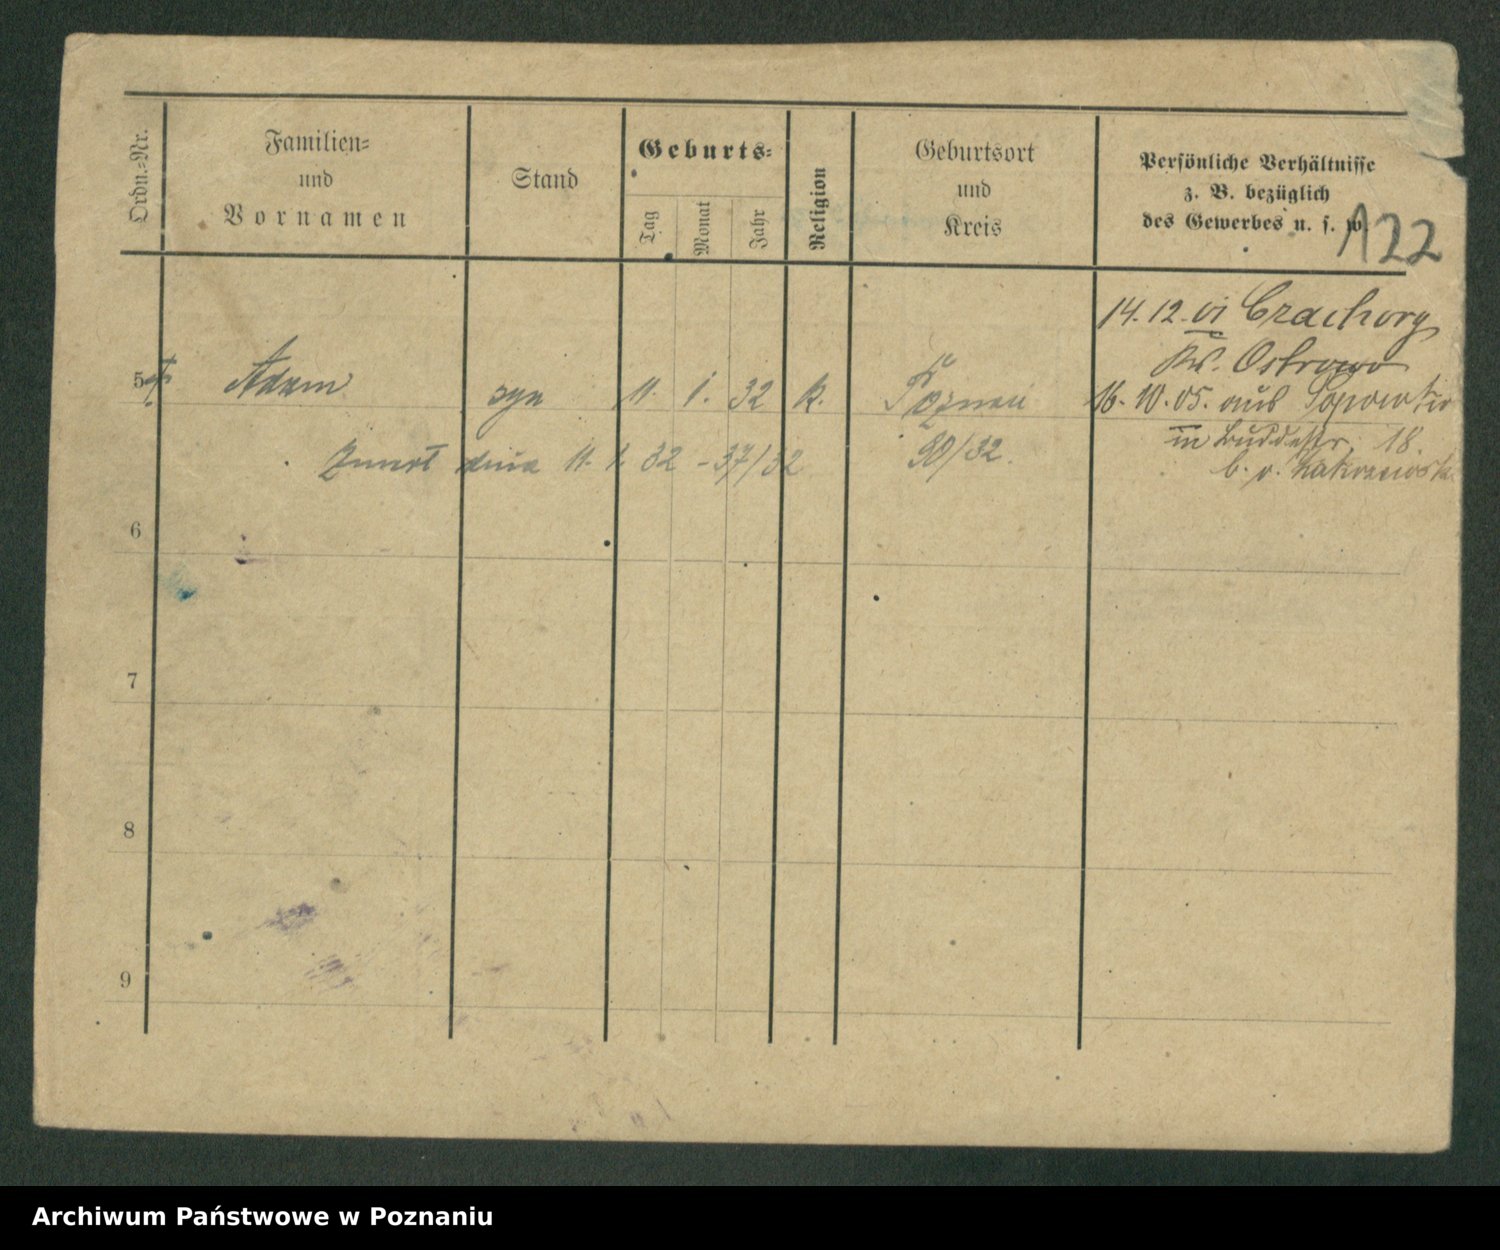 Ordn.=Nr.
Familien=
und
Vornamen
Stand
Geburts=
Tag
Monat
Jahr
Religion
Geburtsort
und
Kreis
Persönliche Verhältnisse
z. B. bezüglich
des Gewerbes u. s. w.
122
14. 12. 01
Kr. Ostrowo
5 † Adam syn 11. 1. 32 k. Poznań
16. 10. 05. aus
Zmarł dnia 11. 1. 32 - 37/32 90/32.
in 18.
6
7
8
9
Archiwum Państwowe w Poznaniu